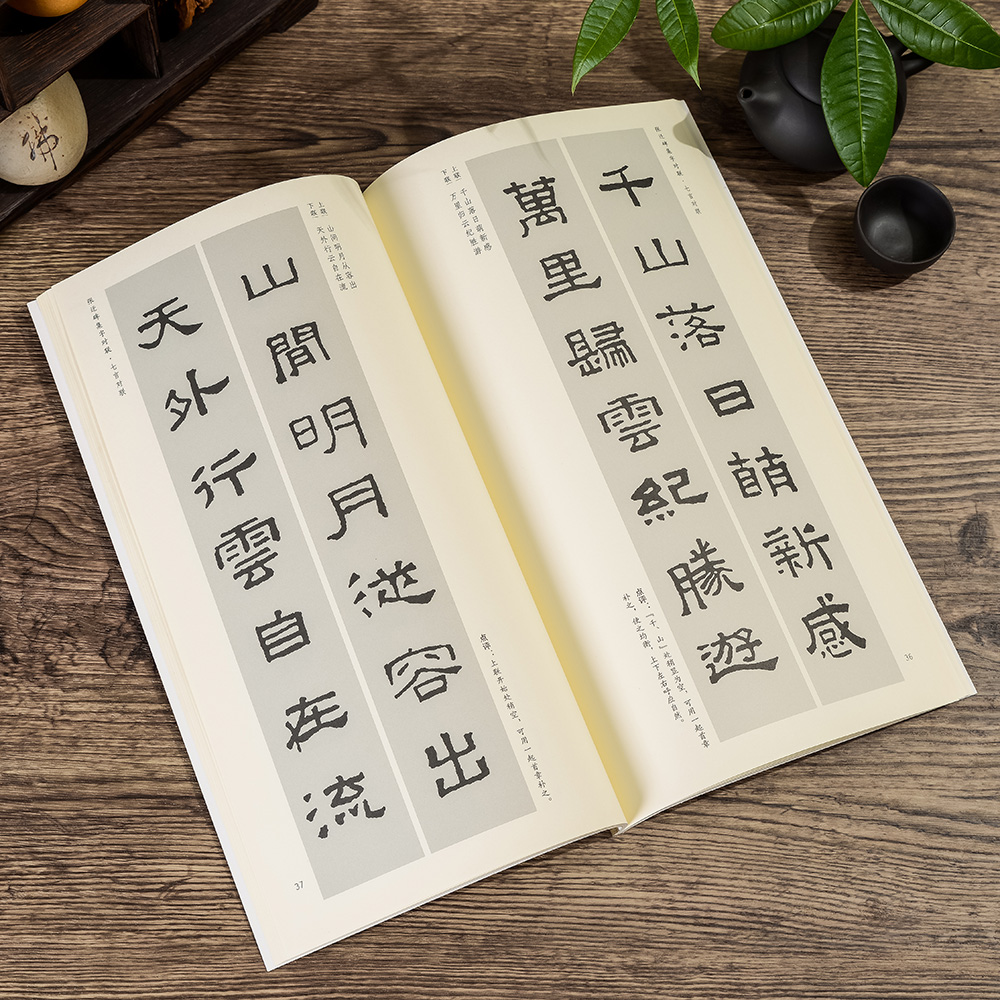 张迁碑集字对联·七言对联
千山落日萌新感
萬里歸雲紀勝遊
上联 千山落日萌新感
下联 万里归云纪胜游
点评:「千、山」处稍显为空,可用一起首章
补之,使之均衡,上下左右呼应自然。
36
上联 山间明月从容出
下联 天外行云自在流
山間明月從容出
天外行雲自在流
点评:上联开始处稍空,可用一起首章补之。
张迁碑集字对联·七言对联
37